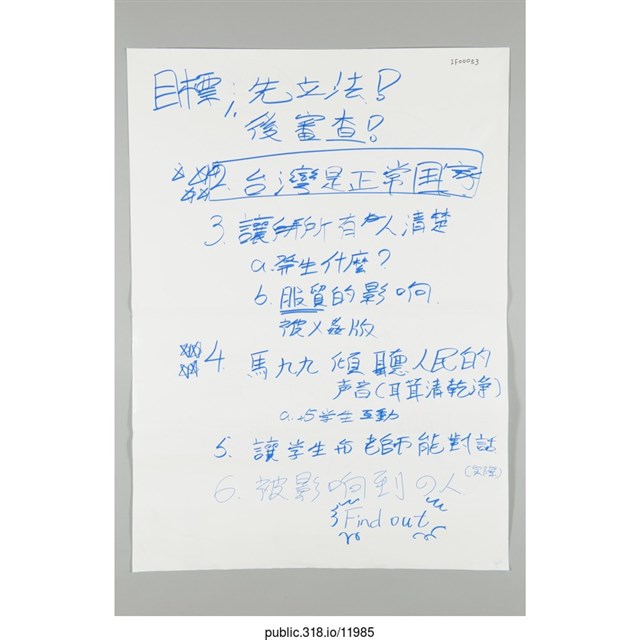 IF00083
目標; 先立法!
後審查!
2. 台灣是正常国家
3. 讓所有人清楚
a. 発生什麼?
b. 服貿的影响
被
4. 馬九九 傾聽人民的
声音(耳茸清乾淨)
a. 学生互動
5. 讓学生 老師能對話
6. 被影响到の人
Find out
public.318.io/11985